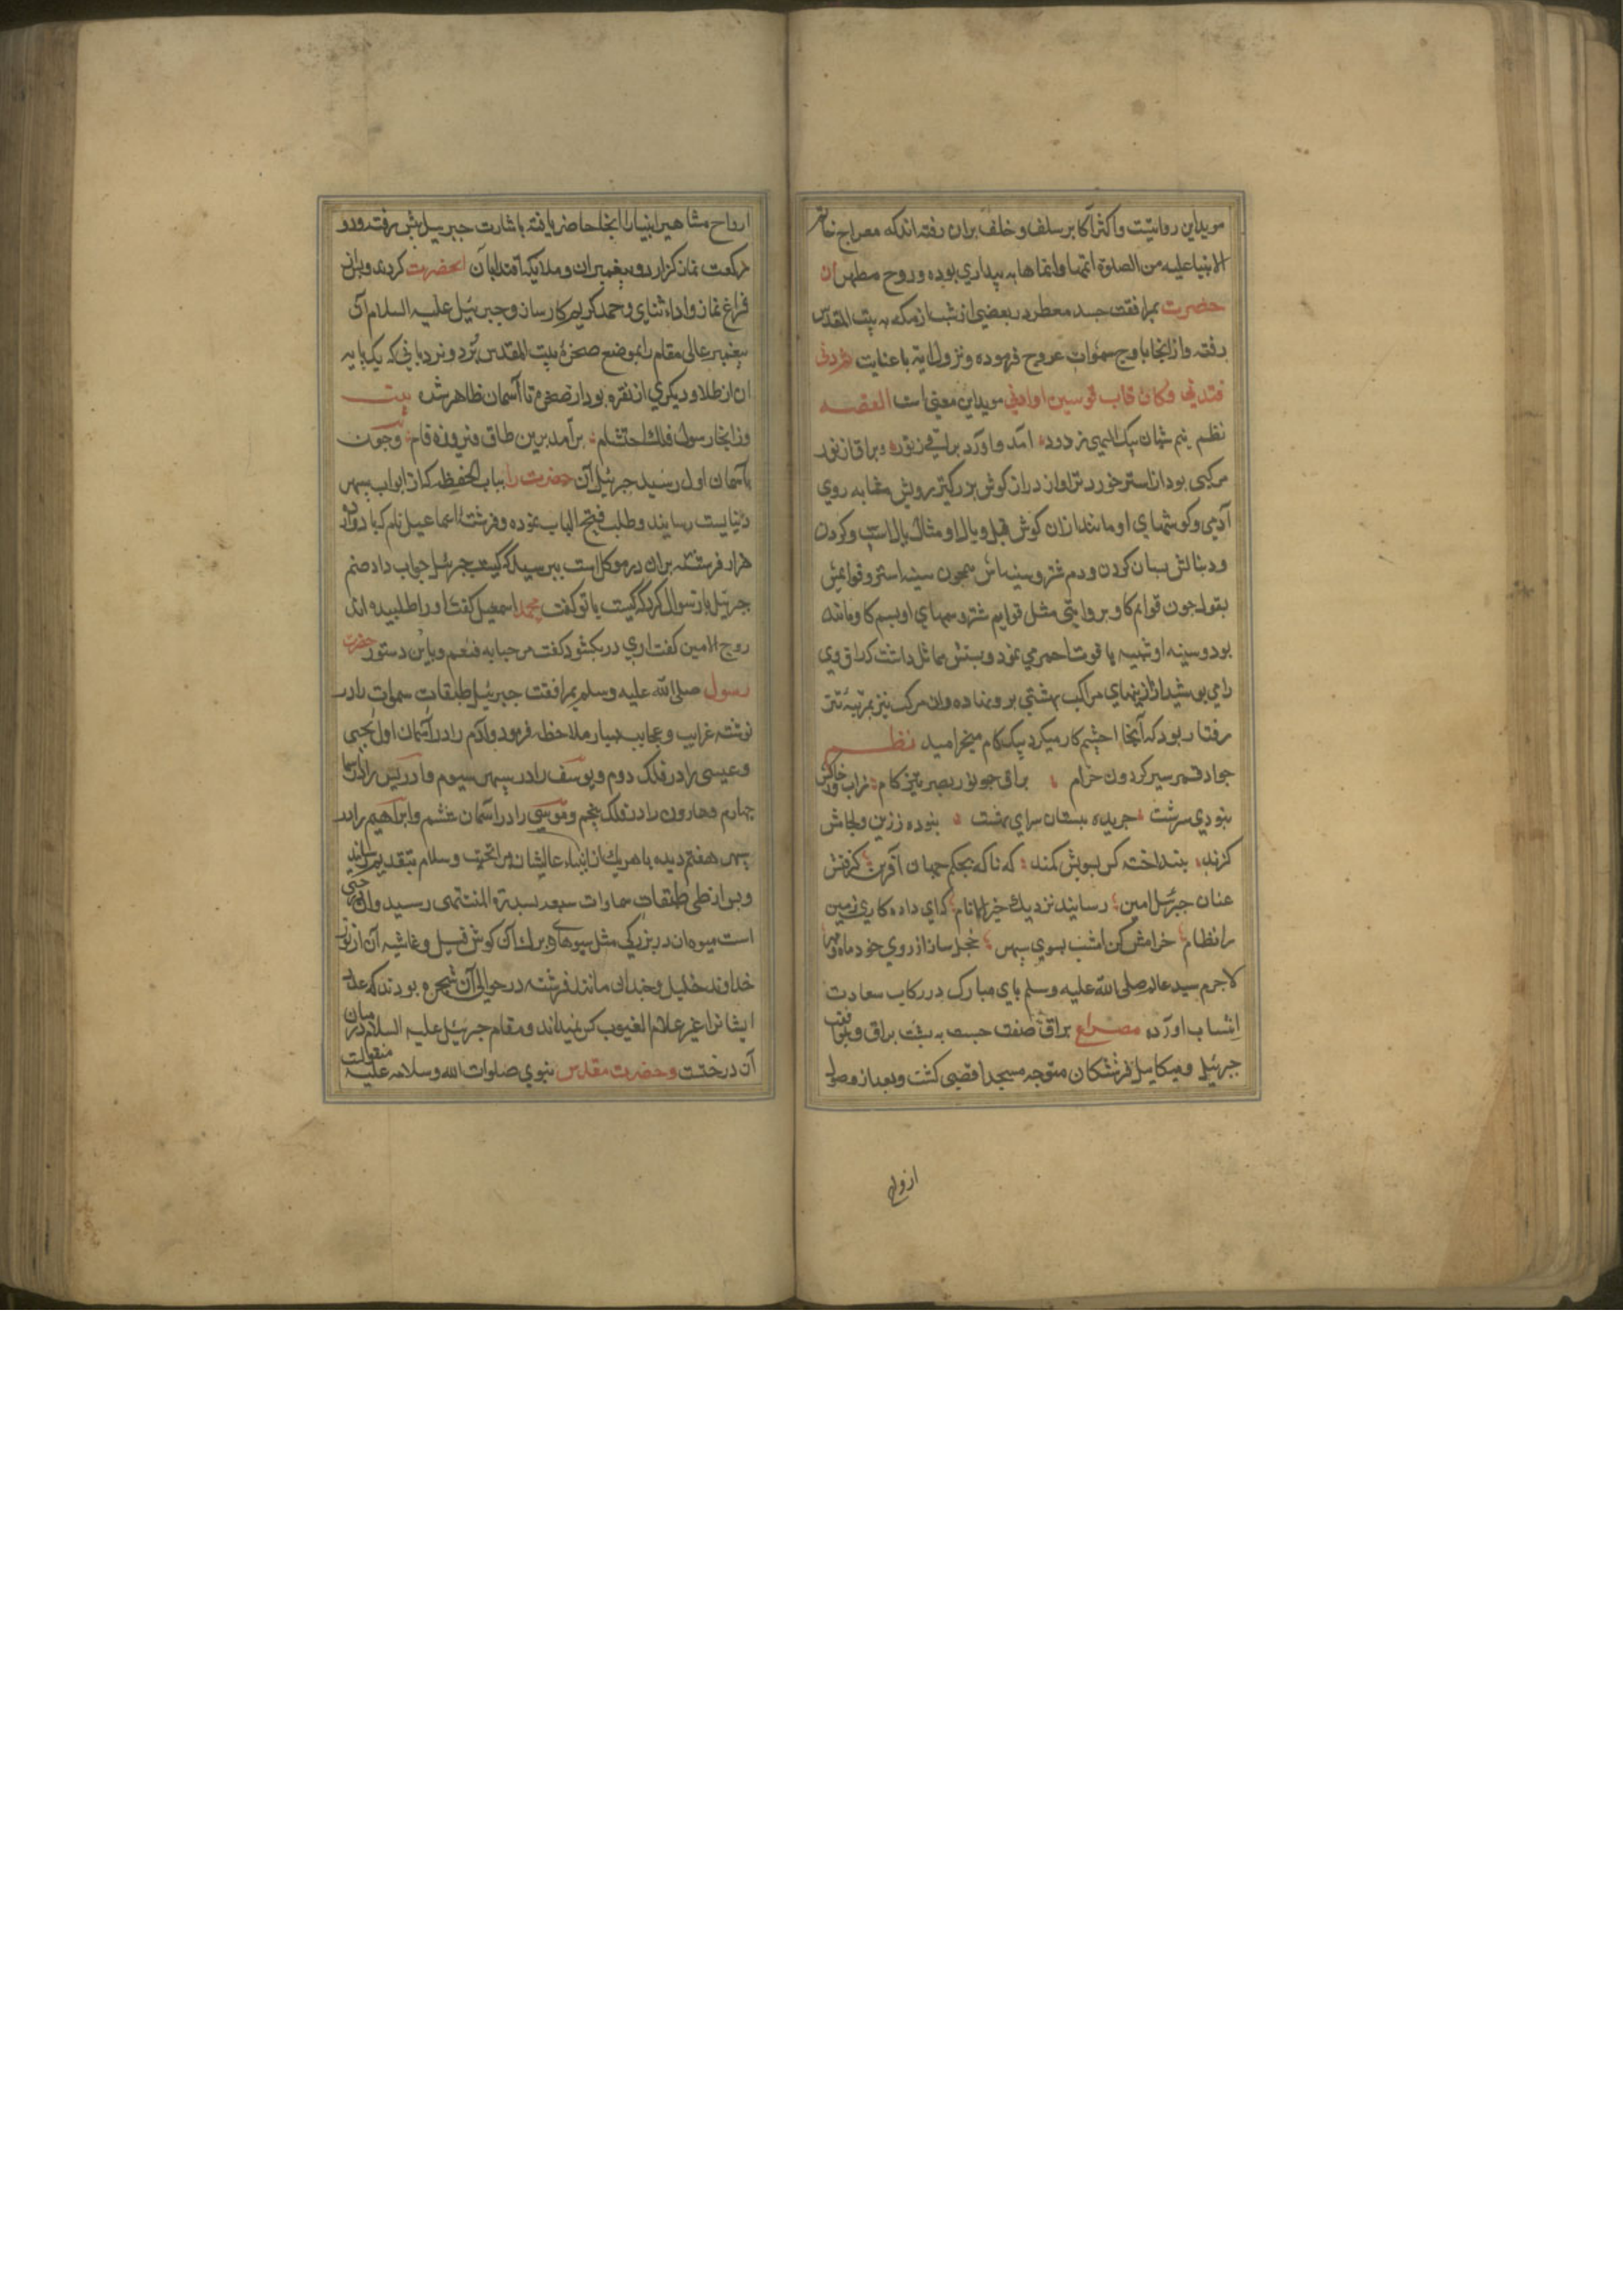 موید این روایتست و اکثر اکابر سلف و خلف بران رفته اند که معراج خاتم
الانبیا علیه من الصلوة اتمها وانماها به بیداری بوده و روح مطهر ان
حضرت بمرافقت جسد معطر در بعضی از شب از مکه به بیت المقدس
رفته و از انجا باوج سموات عروج فرموده و نزول آیة باعنایت ثم دنی
فتدلی فکان قاب قوسین او ادنی موید این معنی است القصه
نظم نیم شبان پیک الهی ز دور امد و اورد براقی ز نور و براق از نور
مرکبی بود از استر خوردتر و از دراز کوش بزرکتر رویش مشابه روی
آدمی و کوشهای او مانند اذان کوش فیل و یال او مثال یال اسب و کردن
و دنبالش بسان کردن و دم شتر و سینه اش همچون سینه استر و قوایمش
بقولی چون قوایم کاو و بروایتی مثل قوایم شتر و سمهای او بسم کاو ماننده
بود و سینه او شبیه یاقوت احمر می نمود و
را می پوشید از زینهای مراکب بهشتی برو نهاده و ان مرکب نیز بمرتبه تیز
رفتار بود که آنجا که چشم کار میکرد بیک کام میخرامید نظم
جواد قمر سیر کردون خرام براقی چو نور بصر تیز کام
نبودی سرشت چریده ببستان سرای بهشت نبوده ززین و لجامش
کزند نینداخته کس بسویش کمند که ناکه بحکم جهان آفرین کرفتش
عنان جبرئیل امین رسانید نزدیک خیر الانام که ای داده کار زمین
را نظام خرامش کن امشب بسوی سپهر خجل ساز از روی خود ماه و مهر
لاجرم سید عالم صلی الله علیه وسلم پای مبارک در رکاب سعادت
انتساب اورده مصراع براق صفت جست به پشت براق و بموافقت
جبرئیل و میکاییل و فرشتکان متوجه مسجد اقصی کشت و بعد از وصول
ارواح
ارواح مشاهیر انبیا را انجا حاضر یافته باشارت جبرییل پیش رفت و دو
رکعت نماز کزارد و پیغمبران و ملایکه اقتدا بآن انحضرت کردند و بعد از
فراغ نماز و اداء ثنای و حمد کریم کارساز و جبرئیل علیه السلام آن
پیغمبر عالی مقام را بموضع صخرهٔ بیت المقدس برد و نردبانی که یک پایه
ان از طلا و دیکری از نقره بود از صخره تا آسمان ظاهر شد بیت
وز انجا رسول فلک احتشام برآمد برین طاق فیروزه فام و چون
بآسمان اول رسید جبرئیل آن حضرت را بباب الحفظه که از ابواب سپهر
دنیاست رسانید و طلب فتح الباب نموده و فرشتهٔ اسماعیل نام که با دوازده
هزار فرشته بران در موکل است پرسید که کیست جبرئیل جواب داد منم
جبرئیل باز سوال کرد که کیست با تو کفت محمد اسمعیل کفت او را طلبیده اند
روح الامین کفت اری در بکشود کفت مرحبا به فنعم و باین دستور حضرت
رسول صلی الله علیه وسلم بمرافقت جبرئیل طبقات سموات را در
نوشته غرایب و عجایب بسیار ملاحظه فرمود و آدم را در آسمان اول و یحیی
و عیسی را در فلک دوم و یوسف را در سپهر سیوم و ادریس را در سما
چهارم و هارون را در فلک پنجم و موسی را در اسمان ششم و ابراهیم را در
سپهر هفتم دیده با هریک از انبیاء عالیشان مراتحیت و سلام بتقدیم رسانید
و بعد از طی طبقات سماوات سبعه بسدرة المنتهی رسید و ان درختی
است میوه ان در بزرکی مثل سبوهای و برک آن کوش فیل و غاشیه آن از نور
خداوند خلیل و چندانی مانند فرشته در حوالی آن شجره بودند که عدد
ایشانرا غیر علام الغیوب کس نمیداند و مقام جبرئیل علیه السلام در میان
آن درختست و حضرت مقدس نبوی صلوات الله وسلامه علیه منقولست